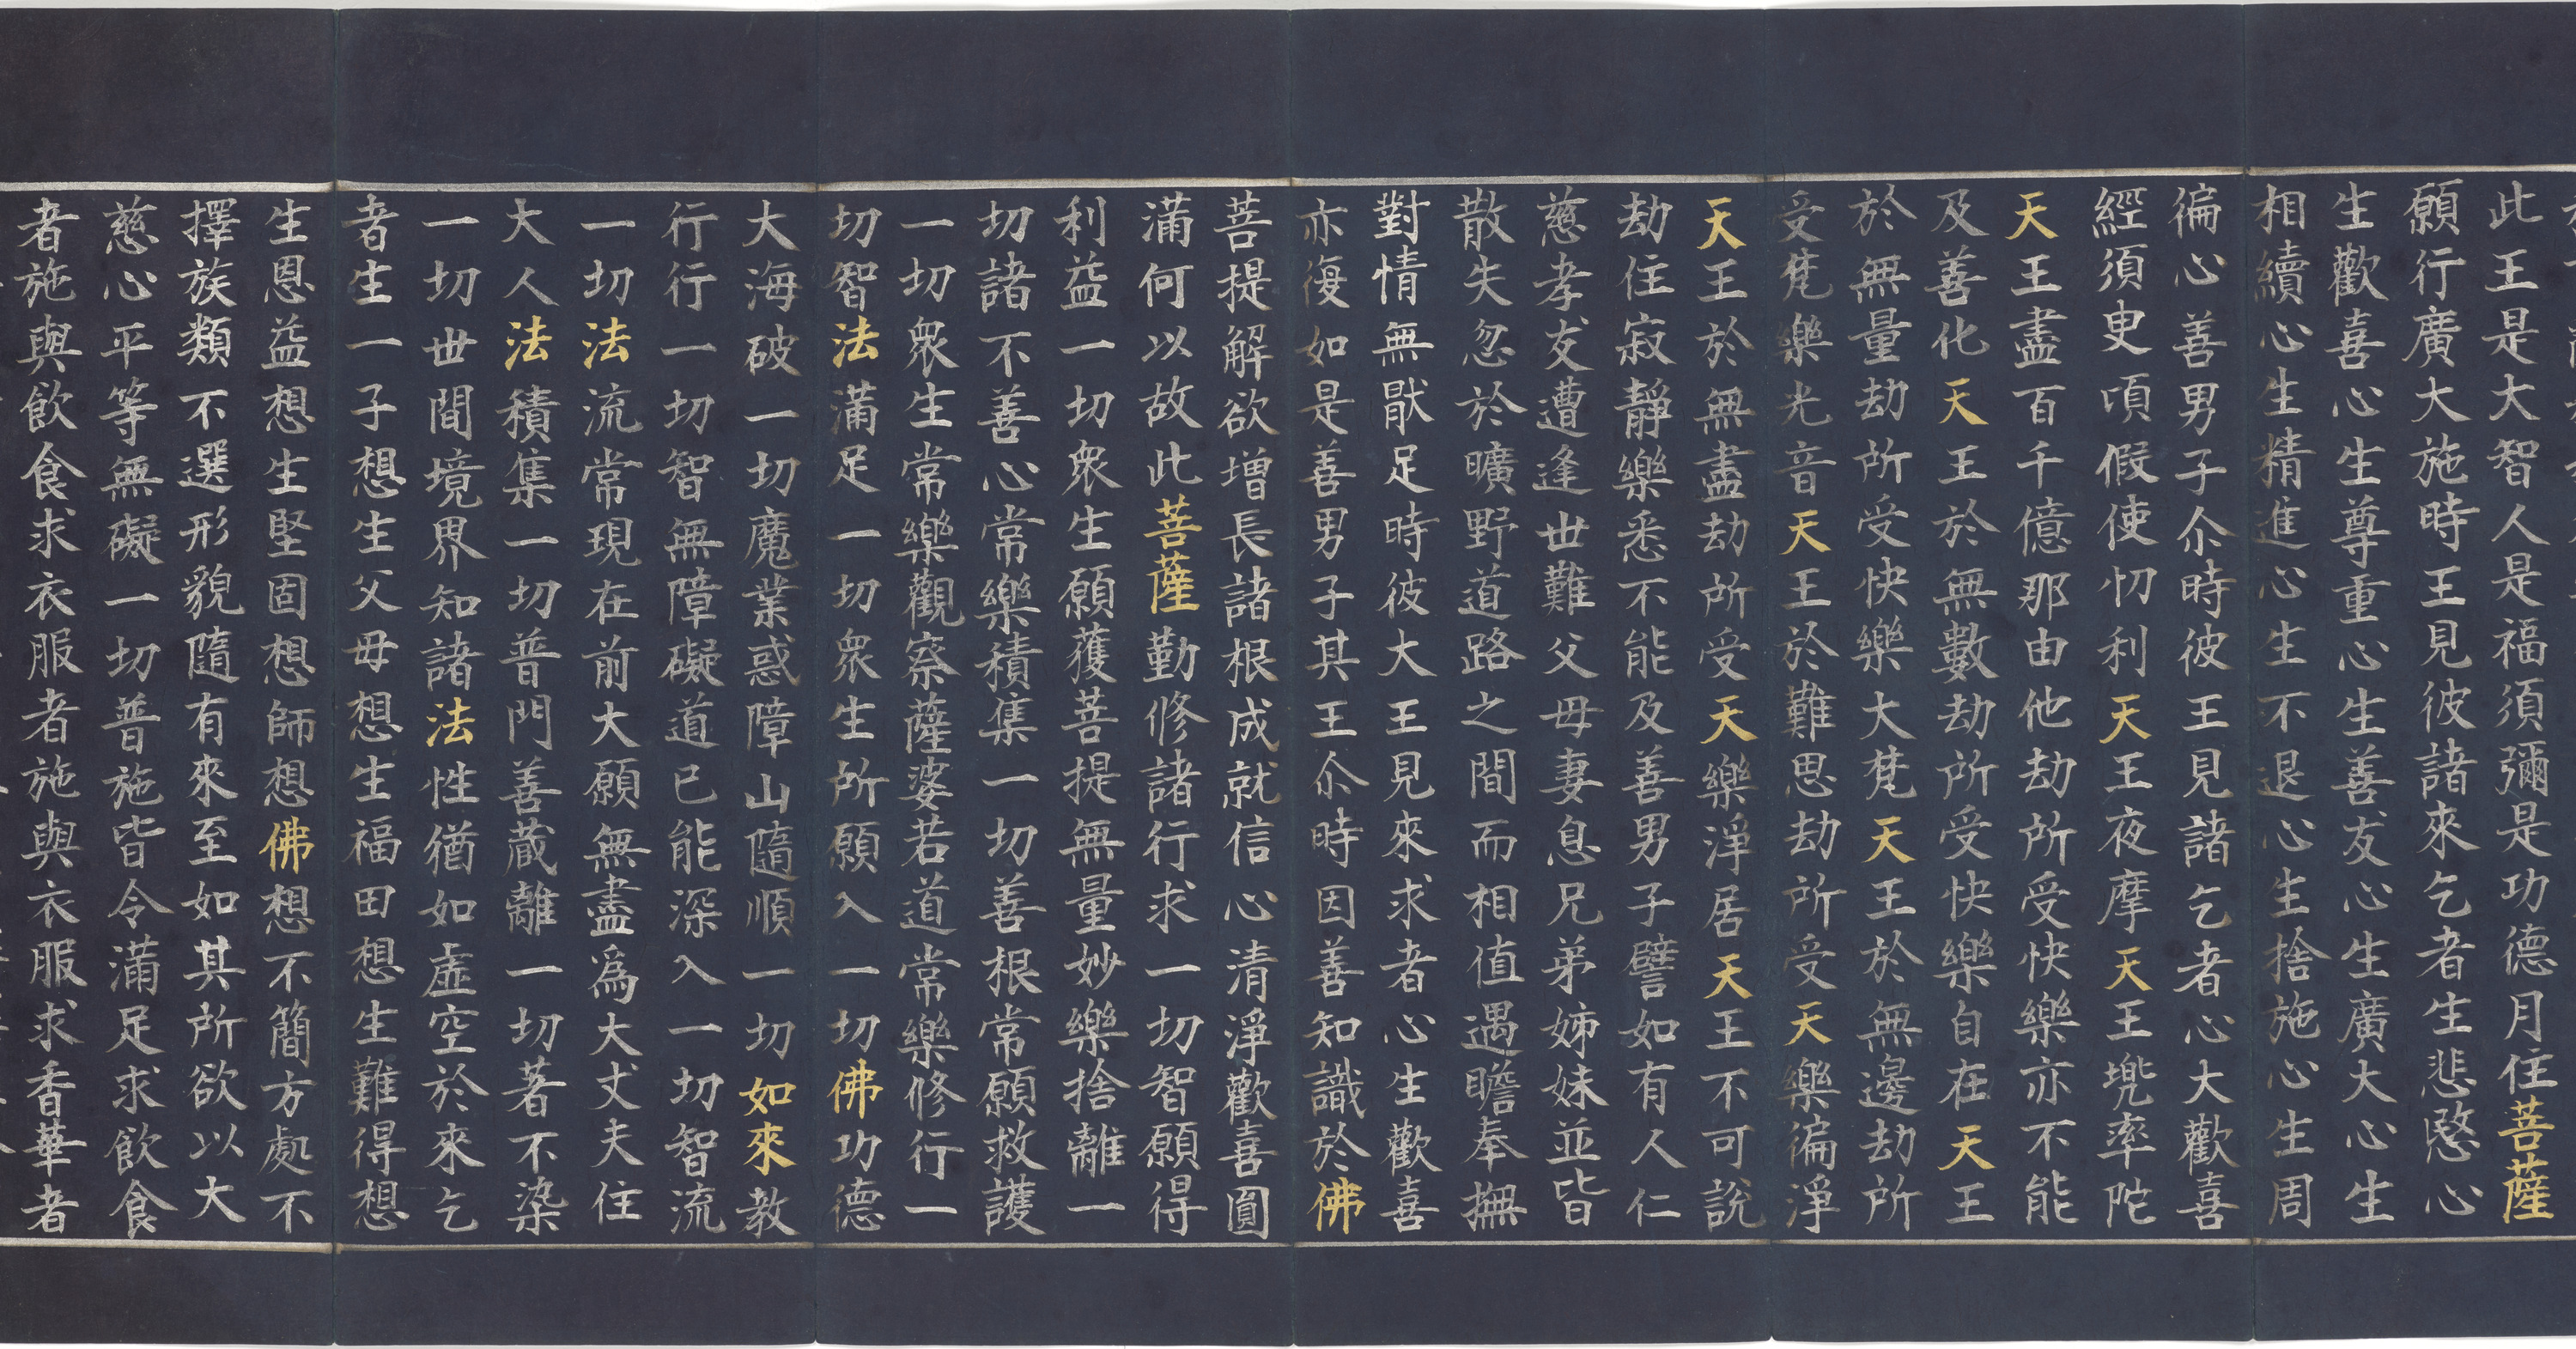 此王是大智人是福須彌是功德月住菩薩
願行廣大施時王見彼諸來乞者生悲愍心
生歡喜心生尊重心生善友心生廣大心生
相續心生精進心生不退心生捨施心生周
徧心善男子尒時彼王見諸乞者心大歡喜
經須臾頃假使忉利天王夜摩天王兜率陀
天王盡百千億那由他劫所受快樂亦不能
及善化天王於無數劫所受快樂自在天王
於無量劫所受快樂大梵天王於無邊劫所
受梵樂光音天王於難思劫所受天樂徧淨
天王於無盡劫所受天樂淨居天王不可說
劫住寂靜樂悉不能及善男子譬如有人仁
慈孝友遭逢世難父母妻息兄弟姊妹並皆
散失忽於曠野道路之間而相值遇瞻奉撫
對情無猒足時彼大王見來求者心生歡喜
亦復如是善男子其王尒時因善知識於佛
菩提解欲增長諸根成就信心清淨歡喜圓
滿何以故此菩薩勤修諸行求一切智願得
利益一切衆生願獲菩提無量妙樂捨離一
切諸不善心常樂積集一切善根常願救護
一切衆生常樂觀察薩婆若道常樂修行一
切智法滿足一切衆生所願入一切佛功德
大海破一切魔業惑障山隨順一切如來教
行行一切智無障礙道已能深入一切智流
一切法流常現在前大願無盡爲大丈夫住
大人法積集一切普門善蔵離一切著不染
一切世間境界知諸法性猶如虛空於來乞
者生一子想生父母想生福田想生難得想
生恩益想生堅固想師想佛想不簡方處不
擇族類不選形貌隨有來至如其所欲以大
慈心平等無礙一切普施皆令滿足求飲食
者施與飲食求衣服者施與衣服求香華者